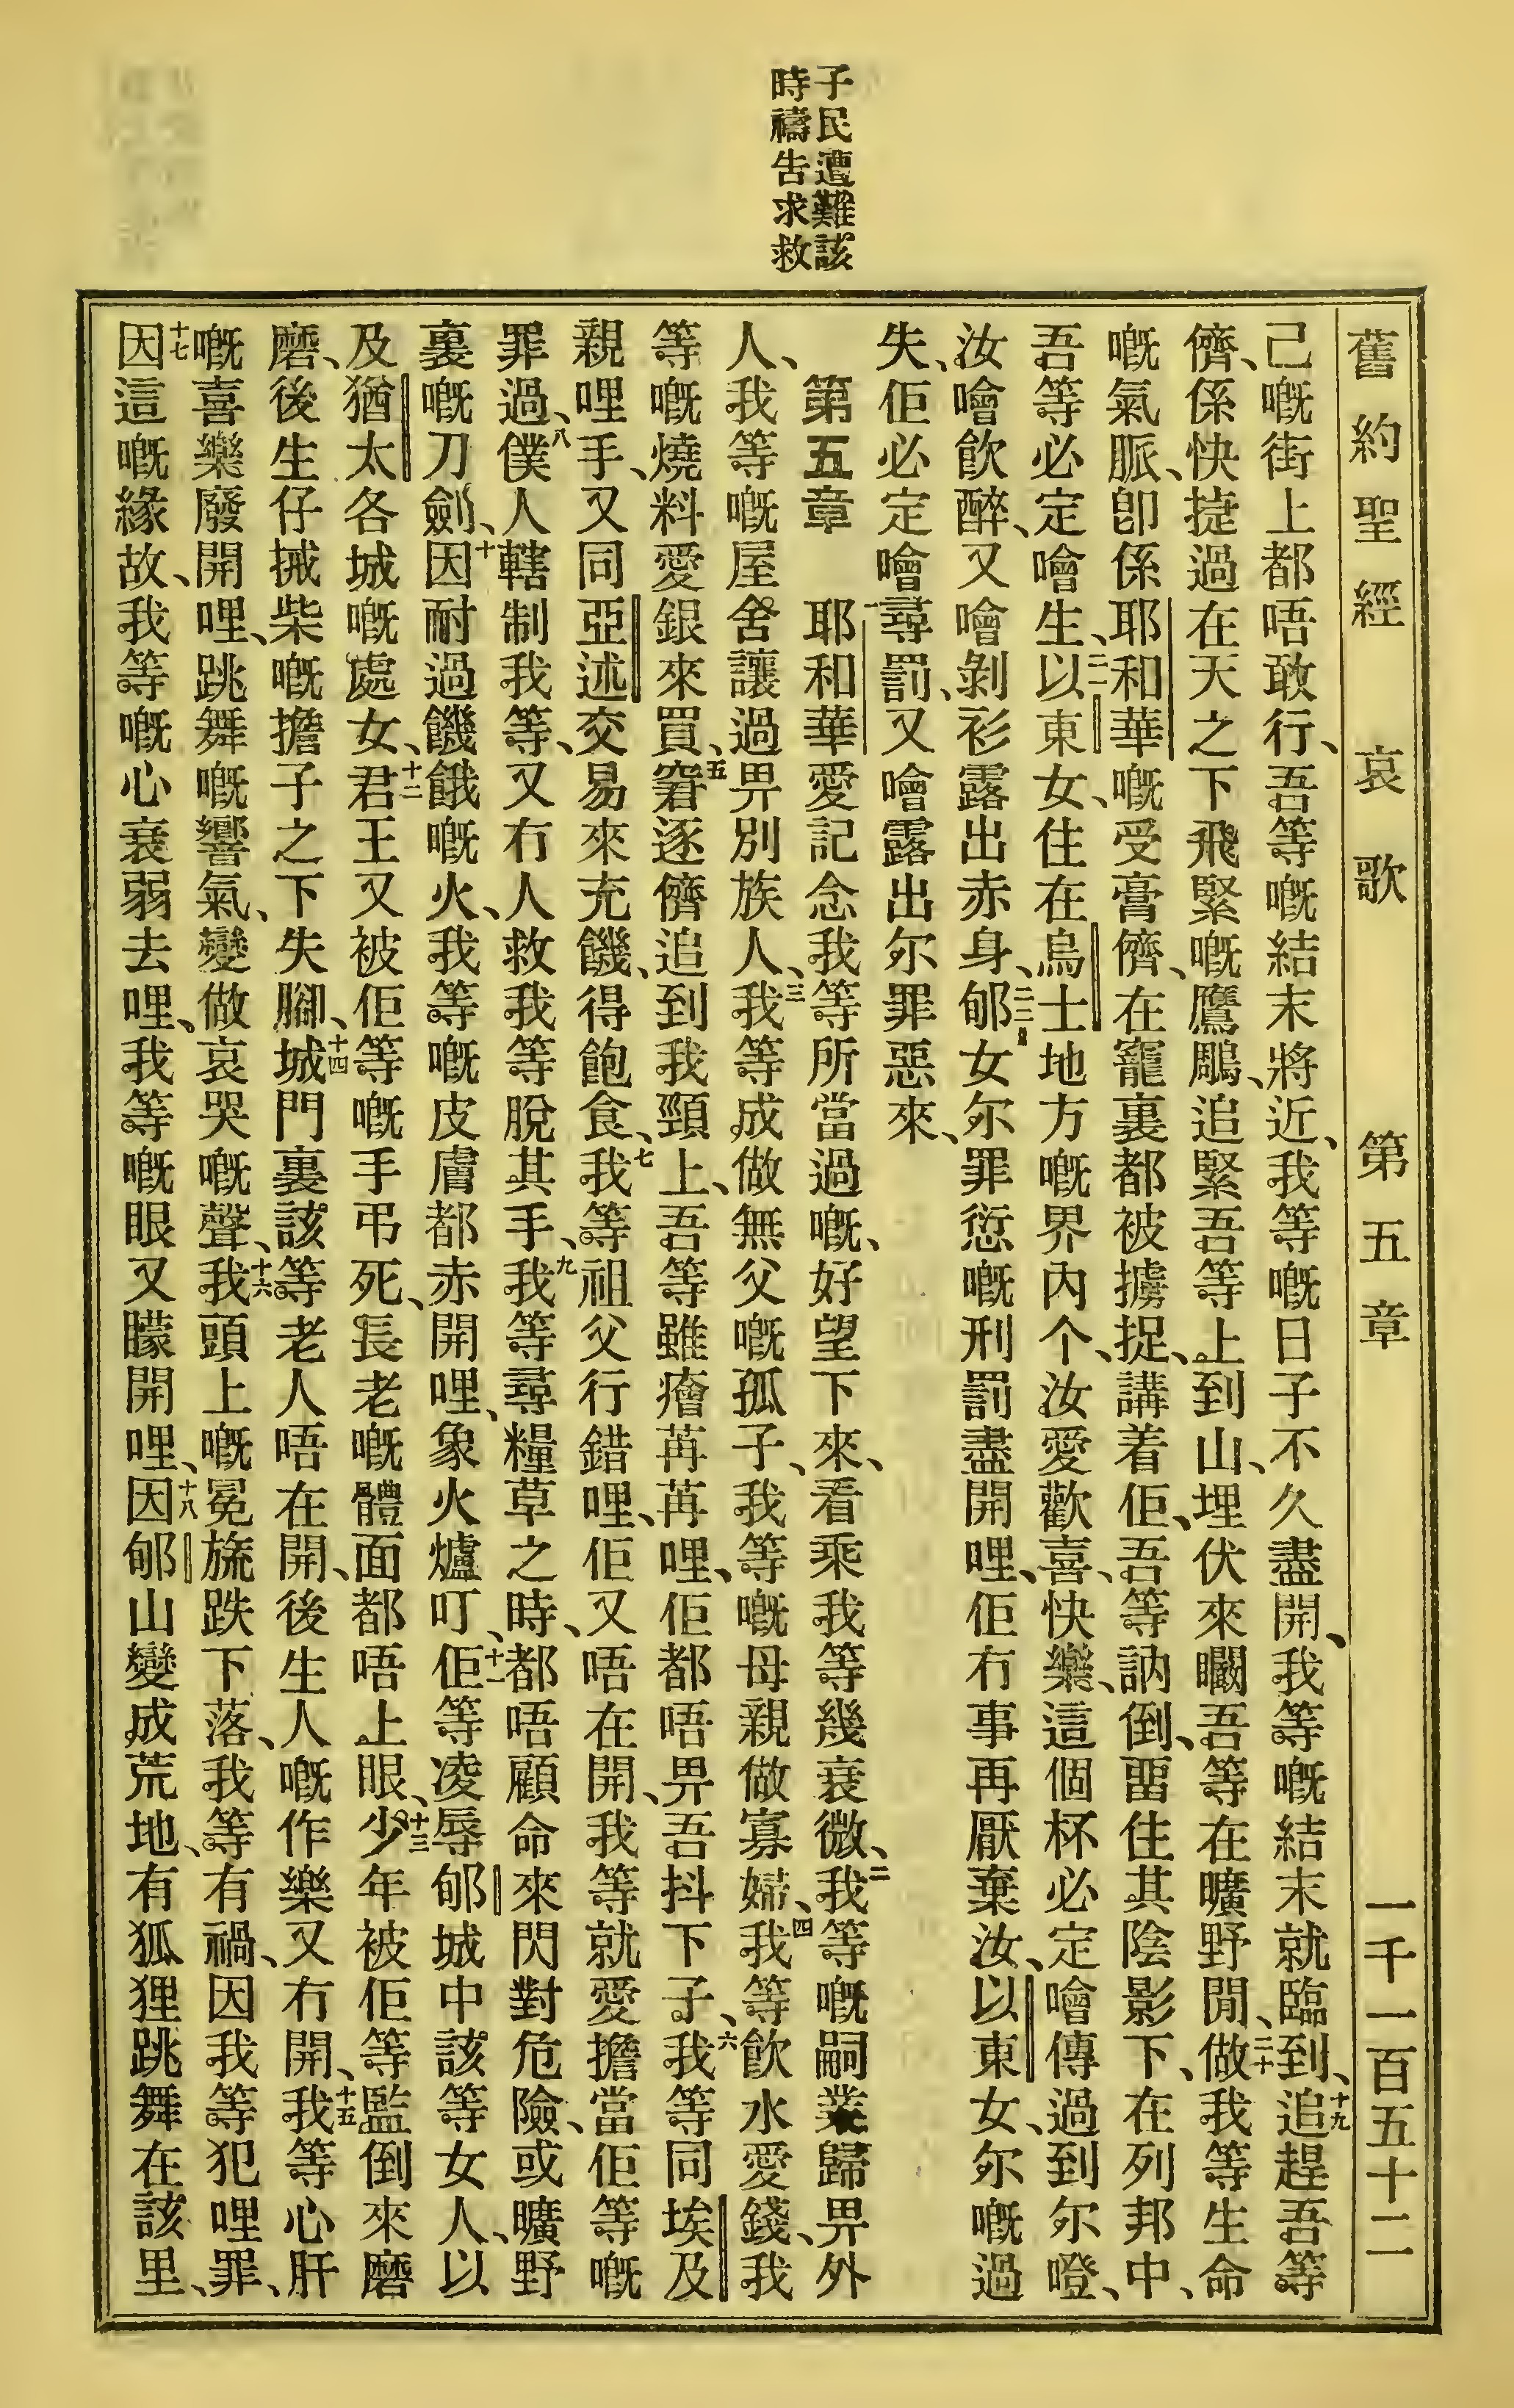 子民遭難該
時禱告求救
舊約聖經 哀歌 第五章 一千一百五十二
己嘅街上都唔敢行、吾等嘅結末將近、我等嘅日子不久盡開、我等嘅結末就臨到、十九追趕吾等
儕、係快捷過在天之下飛緊嘅鷹鵰、追緊吾等上到山、埋伏來㘓吾等在曠野閒、二十做我等生命
嘅氣脈、卽係耶和華嘅受膏儕、在寵裏都被擄捉、講着佢、吾等訥倒、畱住其陰影下、在列邦中、
吾等必定噲生、二一以東女、住在烏士地方嘅界內个、汝愛歡喜、快樂、這個杯必定噲傳過到尔噔、
汝噲飮醉、又噲剝衫露出赤身、二二郇女尔罪愆嘅刑罰盡開哩、佢冇事再厭棄汝、以東女、尔嘅過
失、佢必定噲尋罰、又噲露出尔罪惡來、
第五章 耶和華愛記念我等所當過嘅、好望下來、看乘我等幾衰微、二我等嘅嗣業歸畀外
人、我等嘅屋舍讓過畀別族人、三我等成做無父嘅孤子、我等嘅母親做寡婦、四我等飮水愛錢、我
等嘅燒料愛銀來買、五窘逐儕追到我頸上、吾等雖癐苒苒哩、佢都唔畀吾抖下子、六我等同埃及
親哩手、又同亞述交易來充饑、得飽食、七我等祖父行錯哩、佢又唔在開、我等就愛擔當佢等嘅
罪過、八僕人轄制我等、又冇人救我等脫其手、九我等尋糧草之時、都唔顧命來閃對危險、或曠野
裏嘅刀劍、十因耐過饑餓嘅火、我等嘅皮膚都赤開哩、象火爐叮、十一佢等凌辱郇城中該等女人、以
及猶太各城嘅處女、十二君王又被佢等嘅手弔死、長老嘅體面都唔上眼、十三少年被佢等監倒來磨
磨、後生仔摵柴嘅擔子之下失腳、十四城門裏該等老人唔在開、後生人嘅作樂又冇開、十五我等心肝
嘅喜樂廢開哩、跳舞嘅響氣、變做哀哭嘅聲、十六我頭上嘅冕旒跌下落、我等有禍、因我等犯哩罪、
十七因這嘅緣故、我等嘅心衰弱去哩、我等嘅眼又矇開哩、十八因郇山變成荒地、有狐狸跳舞在該里、